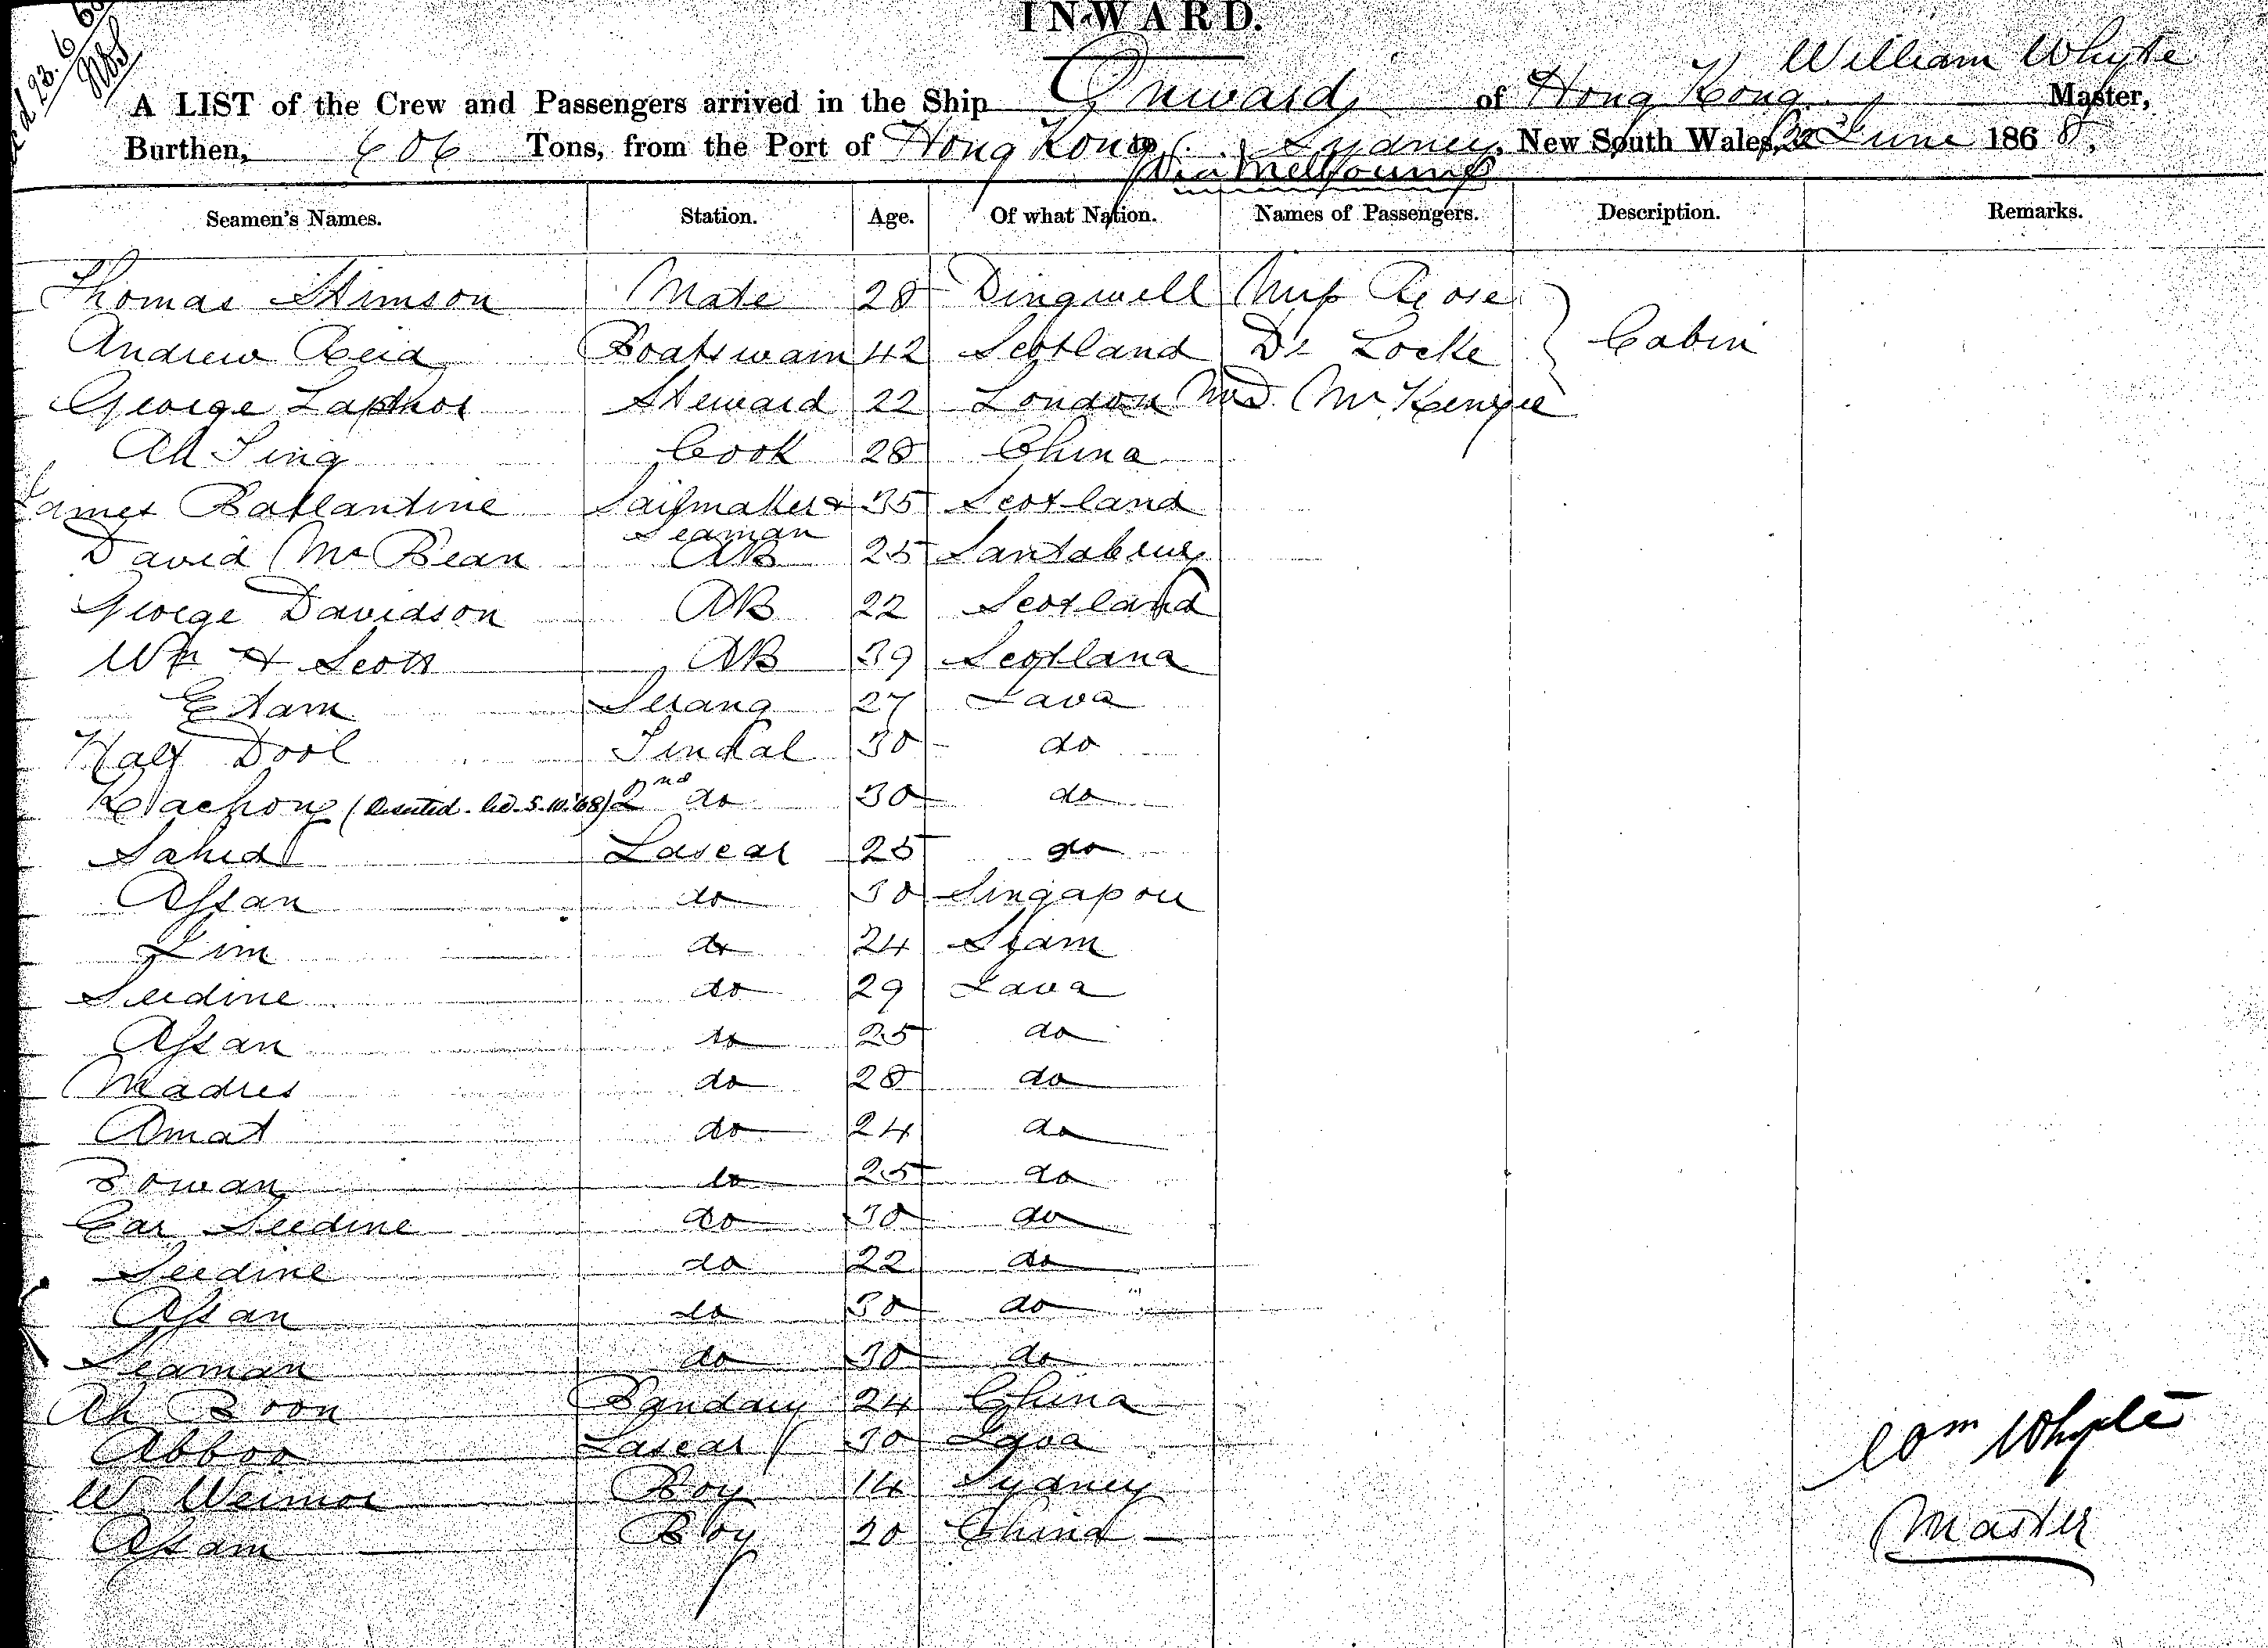 INWARD.
23. 6 68
William Whyte
A LIST of the Crew and Passengers arrived in the Ship Onward, of Hong Kong Master,
Burthen, 606 Tons, from the Port of Hong Kong to Sydney, New South Wales, 22 June 1868,
Via Melbourne
Seamen's Names. Station. Age. Of what Nation. Names of Passengers. Description. Remarks.
Thomas Stimson Mate 28 Dingwell Miss Rose
Andrew Reid Boatswain 42 Scotland Dr Locke Cabin
George Lapthor Steward 22 London Mrs McKenzie
Ah Sing Cook 28 China
James Ballantine Sailmaker & 35 Scotland
Seaman
David McBean AB 25 Santabeuy
George Davidson AB 22 Scotland
Wm H Scott AB 39 Scotland
Etam Serang 27 Java
Half Dool Tindal 30 do
Kachong (Deserted 5.10.'68) 2nd do 30 do
Sahid Lascar 25 do
Assan do 30 Singapore
Lim do 24 Siam
Seedine do 29 Java
Assan do 25 do
Madres do 28 do
Amat do 24 do
Bowan do 25 do
Car Seedine do 30 do
Seedine do 22 do
Assan do 30 do
Seaman do 30 do
Ah Boon Bandary 24 China
Abboo Lascar 30 Java
W Weimor Boy 14 Sydney
Assam Boy 20 China
Wm Whyte
Master